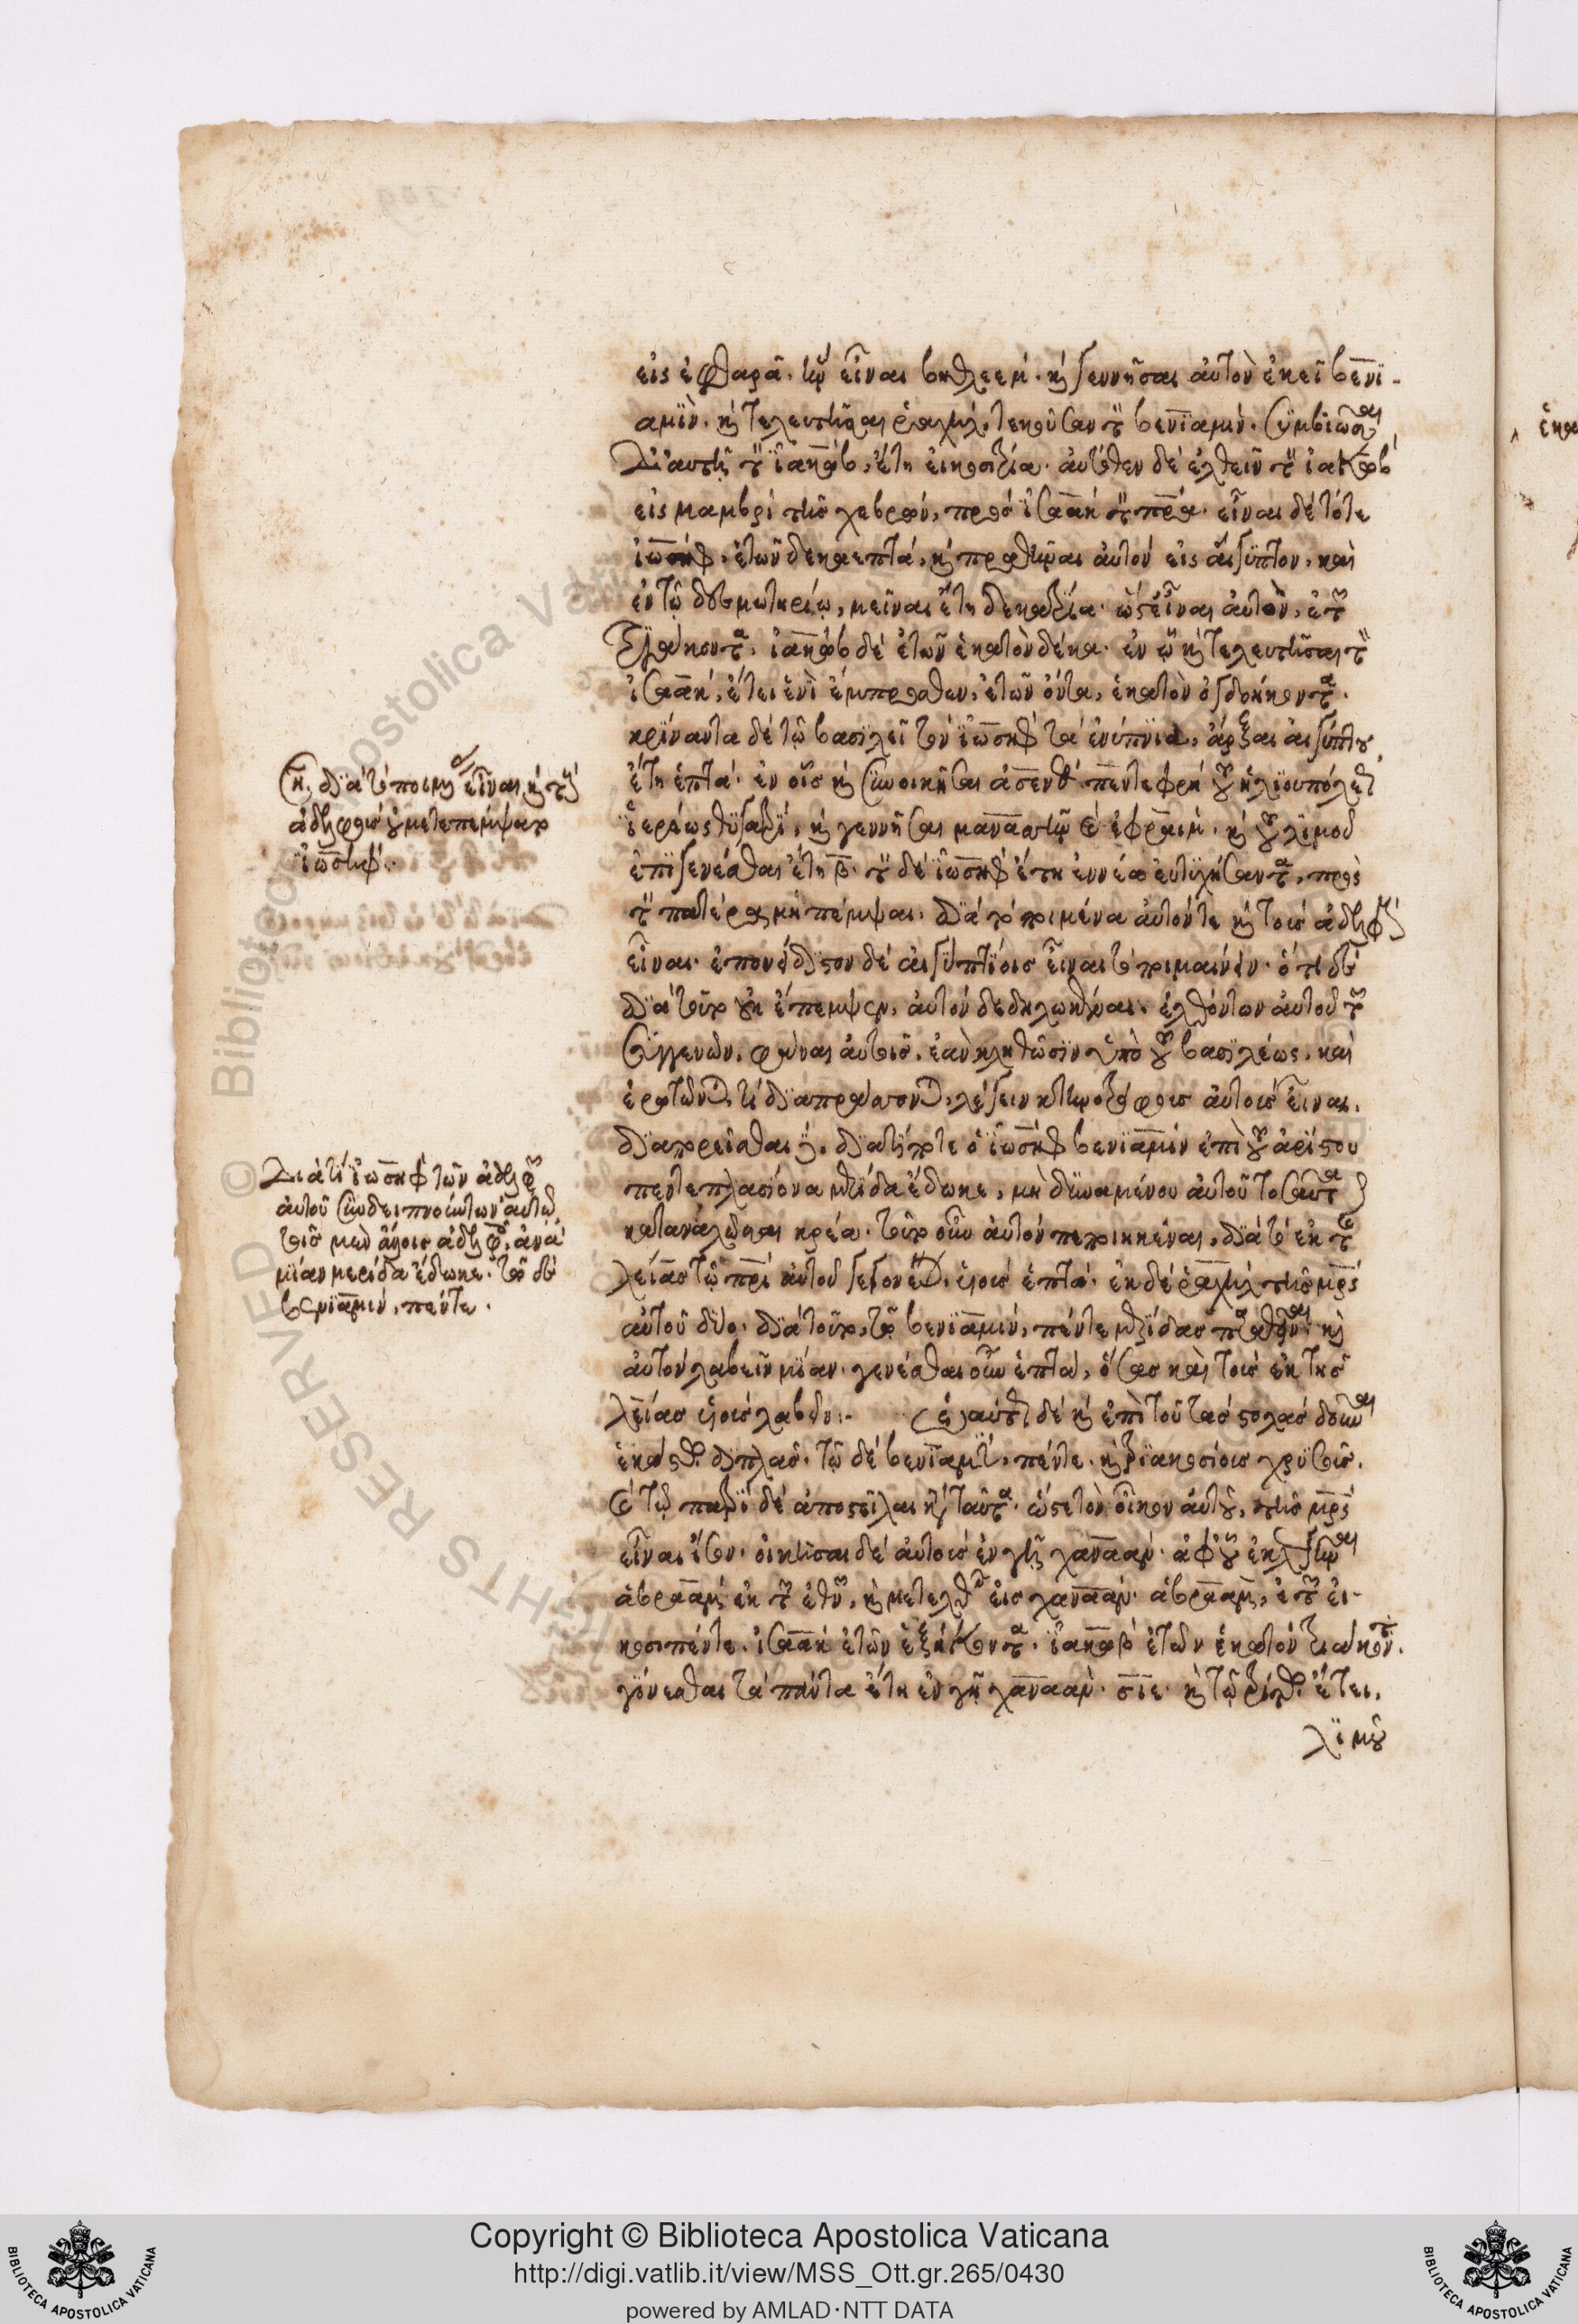 εἰς ἐφραθᾶ, εἶναι βηθλεέμ. καὶ γεννῆσαι αὐτὸν ἐκεῖ βενϊ-
αμὶν. καὶ τελευτῆσαι ῥαχὴλ, τεκοῦσαν τὸν βενϊαμίν. συμβιώσασαν
τῷ ἰακὼβ, ἔτη εἰκοσιτρία. αὐτόθεν δὲ ἐλθεῖν τὸν ἰακὼβ
εἰς μαμβρὶ τῆς χεβρὼν, πρὸς ἰσαὰκ τὸν πρα. εἶναι δὲ τότε
ἰωσὴφ, ἐτῶν δεκαεπτά, καὶ πραθῆναι αὐτὸν εἰς αἴγυπτον, καὶ
ἐν τῷ δεσμωτηρίῳ, μεῖναι ἔτη δεκατρία. ὡς εἶναι αὐτὸν, ἐτῶν
τριάκοντα. ἰακὼβ δὲ ἐτῶν ἑκατὸν δέκα. ἐν ᾧ καὶ τελευτῆσαι τὸν
ἰσαὰκ, ἔτει ἑνὶ ἔμπροσθεν, ἐτῶν ὄντα, ἑκατὸν ὀγδοήκοντα.
κρίναντα δὲ τῷ βασιλεῖ τὸν ἰωσὴφ τὰ ἐνύπνια, ἄρξαι αἰγύπτου
ἔτη ἑπτά. ἐν οἷς καὶ συνοικῆσαι ἀσενὲθ πεντεφρῆ τοῦ ἡλιουπόλεως
ἱερέως θυγατρὶ, καὶ γεννῆσαι μανασσῆ καὶ ἐφραΐμ. καὶ τοῦ λιμοῦ
ἐπιγενέσθαι ἔτη β. τὸν δὲ ἰωσὴφ ἔτη ἐννέα εὐτυχήσαντα, πρὸς
τὸν πατέρα μὴ πέμψαι. διὰ τὸ ποιμένα αὐτόν τε καὶ τοὺς ἀδελφοὺς
εἶναι. ἐπονείδιστον δὲ αἰγυπτίοις εἶναι τὸ ποιμαίνειν. ὅτι δὲ
διὰ τοῦτο οὐκ ἔπεμψεν, αὐτὸν δεδηλωκέναι. ἐλθόντων αὐτοῦ τῶν
συγγενῶν, φάναι αὐτοῖς, ἐὰν κληθῶσιν ὑπὸ τοῦ βασιλέως, καὶ
ἐρωτῶνται τί διαπράσσονται, λέγειν κτηνοτρόφους αὐτοὺς εἶναι.
διαπορεῖσθαι δὲ, διατί ποτε ὁ ἰωσὴφ βενιαμὶν ἐπὶ τοῦ ἀρίστου
πενταπλασίονα μερίδα ἔδωκε, μὴ δυναμένου αὐτοῦ τοσαῦτα
καταναλῶσαι κρέα. τοῦτο οὖν αὐτὸν πεποιηκέναι, διὰ τὸ ἐκ τῆς
λείας τῷ πρὶ αὐτοῦ γεγονέναι υἱοὺς ἑπτά. ἐκ δὲ ῥαχὴλ τῆς μρς
αὐτοῦ δύο. διὰ τοῦτο, τῷ βενιαμὶν, πέντε μερίδας παραθεῖναι, καὶ
αὐτὸν λαβεῖν μίαν. γενέσθαι οὖν ἑπτά, ὅσας καὶ τοὺς ἐκ τῆς
λείας υἱοὺς λαβεῖν. δὲ καὶ ἐπὶ τοῦ τὰς στολὰς δοῦναι
ἑκάστῳ διπλᾶς. τῷ δὲ βενιαμὶν, πέντε. καὶ τριακοσίους χρυσοῦς.
καὶ τῷ πατρὶ δὲ ἀποστεῖλαι κατὰ ταῦτα. ὥστε τὸν οἶκον αὐτοῦ, τῆς μρς
εἶναι ἴσον. οἰκῆσαι δὲ αὐτοὺς ἐν γῇ χαναὰν. ἀφ' οὗ ἐκλεγῆναι
ἀβραὰμ ἐκ τῶν ἐθνῶν, καὶ μετελθεῖν εἰς χαναὰν. ἀβραὰμ, ἐτῶν εἰ-
κοσιπέντε. ἰσαὰκ ἐτῶν ἑξήκοντα. ἰακὼβ ἐτῶν ἑκατὸν τριάκοντα.
γίνεσθαι τὰ πάντα ἔτη ἐν γῇ χαναὰν. σιε. καὶ τῷ τρίτῳ ἔτει,
λιμοῦ
διὰ τὸ ποιμένα εἶναι καὶ τοὺς
ἀδελφοὺς οὐ μετεπέμψατο
ἰωσὴφ.
Διὰ τί ἰωσὴφ τῶν ἀδελφῶν
αὐτοῦ συνδειπνούντων αὐτῷ,
τοῖς μὲν ἄλλοις ἀδελφοῖς, ἀνὰ
μίαν μερίδα ἔδωκε. τῷ δὲ
βενιαμὶν, πέντε.
Copyright © Biblioteca Apostolica Vaticana
http://digi.vatlib.it/view/MSS_Ott.gr.265/0430
powered by AMLAD·NTT DATA